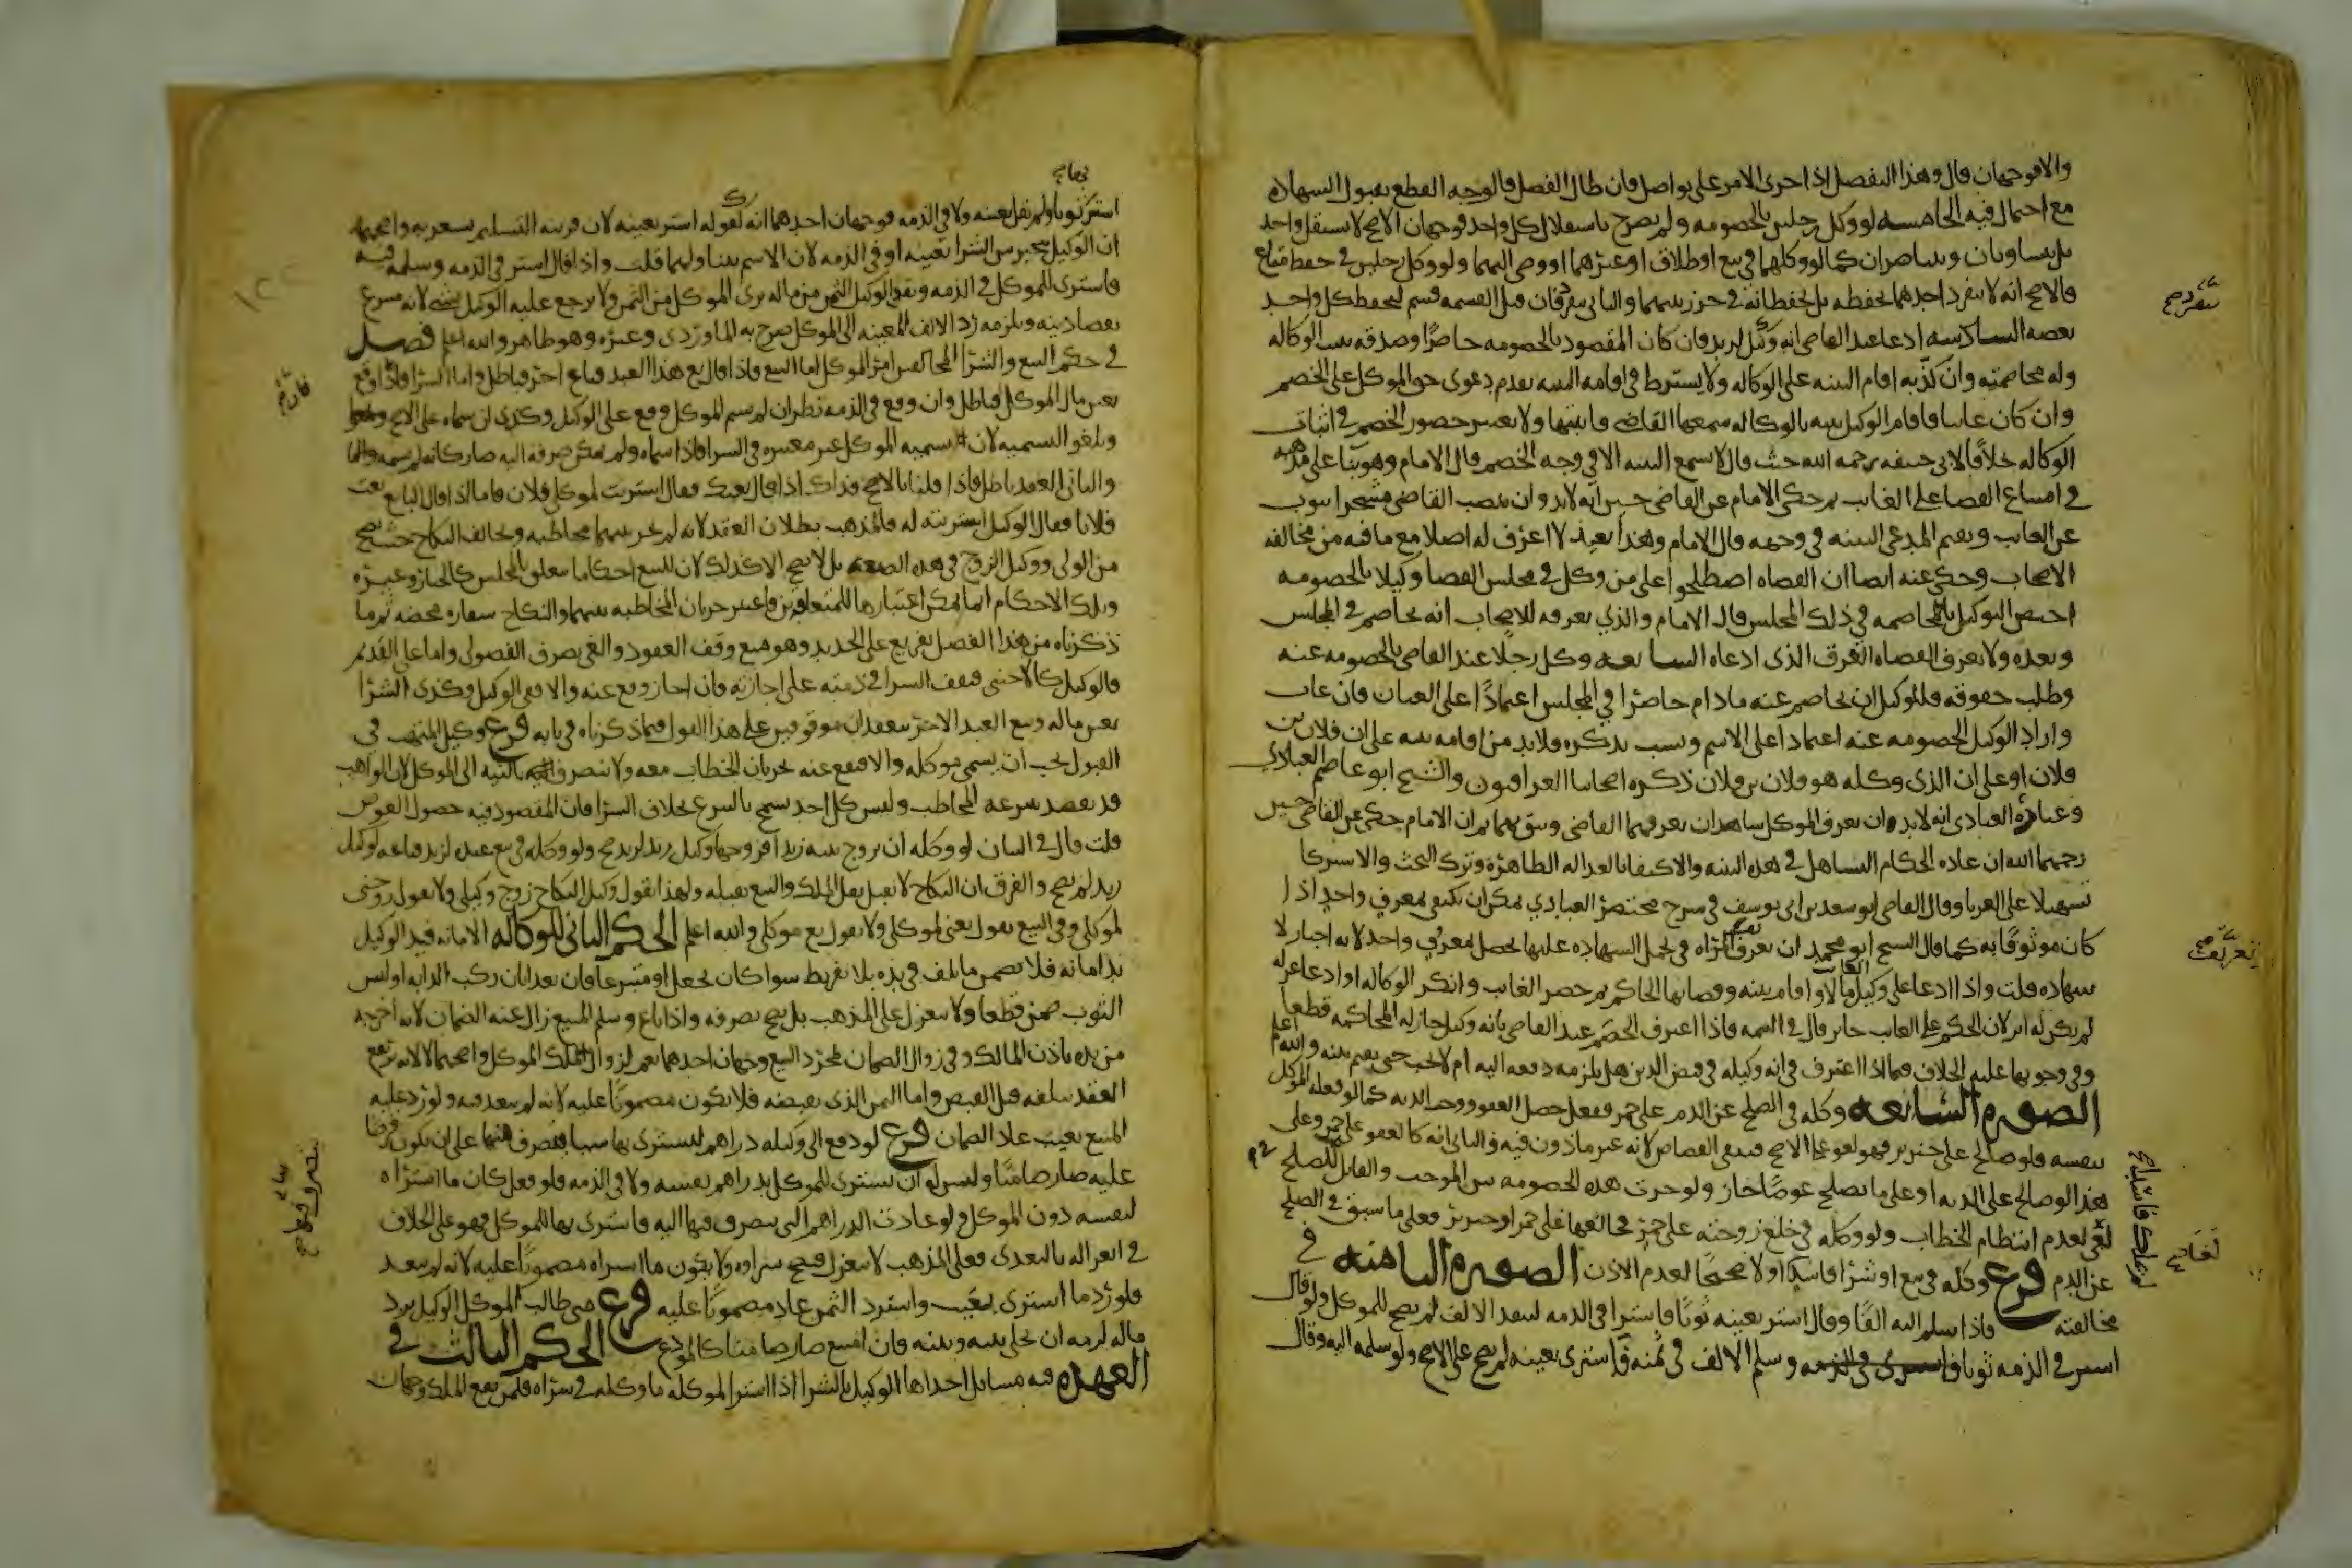 والا فوجهان قال وهذا التفصيل اذا جرى الامر على تواصل فان طال الفصل فالوجه القطع بقبول الشهاده
مع احتمال فيه الخامسه لو وكل رجلين بالخصومه ولم يصرح باستقلال كل واحد فوجهان الاصح لا يستقل واحد
بل يتساوران ويتناصران كما لو وكلهما في بيع او طلاق او غيرهما او وصى اليهما ولو وكل رجلين في حفظ متاع
فالاصح انه لا ينفرد احدهما بحفظه بل يحفظانه في حرز بينهما والثاني ينفردان فان قبل القسمه قسم ليحفظ كل واحد
بعضه السادسه ادعا عند القاضي انه وكيل لزيد فان كان المقصود بالخصومه حاضرا وصدقه ثبتت الوكاله
وله مخاصمته وان كذبه اقام البينه على الوكاله ولا يشترط في اقامه البينه تقدم دعوى حق الموكل على الخصم
وان كان غايبا فاقام الوكيل بينه بالوكاله سمعها القاضي واثبتها ولا يعتبر حضور الخصم في اثبات
الوكاله خلافا لابي حنيفه رحمه الله حيث قال لا تسمع البينه الا في وجه الخصم قال الامام وهو بناء على مذهبه
في امتناع القضا على الغايب ثم حكى الامام عن القاضي حسين انه لا بد وان ينصب القاضي مسخرا ينوب
عن الغايب ويقيم المدعي البينه في وجهه قال الامام وهذا بعيد لا اعرف له اصلا مع ما فيه من مخالفه
الاصحاب وحكى عنه ايضا ان القضاه اصطلحوا على من وكل في مجلس القضا وكيلا بالخصومه
اختص التوكيل بالمخاصمه في ذلك المجلس قال الامام والذي نعرفه للاصحاب انه يخاصم في المجلس
وبعده ولا نعرف للقضاه العرف الذي ادعاه السابعه وكل رجلا عند القاضي بالخصومه عنه
وطلب حقوقه فللوكيل ان يخاصم عنه ما دام حاضرا في المجلس اعتمادا على العيان فان غاب
واراد الوكيل الخصومه عنه اعتمادا على الاسم ونسب يذكره فلا بد من اقامه بينه على ان فلان بن
فلان او على ان الذي وكله هو فلان بن فلان ذكره اصحابنا العراقيون والشيخ ابو عاصم العبادي
وعباره العبادي انه لا بد وان يعرف الموكل شاهدان يعرفهما القاضي ويثق بهما ثم ان الامام حكى عن القاضي حسين
رحمهما الله ان عاده الحكام التساهل في هذه البينه والاكتفا بالعداله الظاهره وترك البحث والاستزكا
تسهيلا على الغربا وقال القاضي ابو سعد بن ابي يوسف في شرح مختصر العبادي يمكن ان يكتفى بمعرف واحد اذا
كان موثوقا به كما قال الشيخ ابو محمد ان تعريف المراه في تحمل الشهاده عليها يحصل بمعرف واحد لانه اخبار لا
شهاده قلت واذا ادعا على وكيل الغايب مالا واقام بينه وقضا بها الحاكم ثم حضر الغايب وانكر الوكاله او ادعا عزله
لم يكن له اثر لان الحكم على الغايب جايز قال في التتمه فاذا اعترف الخصم عند القاضي بانه وكيل جاز له المحاكمه قطعا
وفي وجوبها عليه الخلاف فيما اذا اعترف في انه وكيله في قبض الدين هل يلزمه دفعه اليه ام لا يجب حتى يقيم بينه والله اعلم
الصوره السابعه وكله في الصلح عن الدم على خمر ففعل حصل العفو ووجب الديه كما لو فعله الموكل
بنفسه فلو صالح على خنزير فهو لغو على الاصح فيبقى القصاص لانه غير ماذون فيه والثاني انه كالعفو على خمر وعلى
هذا لو صالح على الديه او على ما يصلح عوضا جاز ولو جرت هذه الخصومه بين الموجب والقابل للصلح
لغى لعدم انتظام الخطاب ولو وكله في خلع زوجته على خمر فخالعها على خمر او خنزير فعلى ما سبق في الصلح
عن الدم فرع وكله في بيع او شرا فاسد لا صحيحا لعدم الاذن الصوره الثامنه في
مخالفته فاذا سلم اليه الفا وقال اشتر بعينه ثوبا فاشترا في الذمه لينقد الالف لم يصح للموكل ولو قال
اشتر في الذمه ثوبا وسلم الالف في ثمنه فاشترى بعينه لم يصح على الاصح ولو سلمه اليه وقال
اشتر ثوبا ولم يقل بعينه ولا في الذمه فوجهان احدهما انه كقوله اشتر بعينه لان قرينه التسليم تشعر به واصحهما
ان الوكيل يتخير بين الشرا بعينه او في الذمه لان الاسم يتناولهما قلت واذا قال اشتر في الذمه وسلمه فيه
فاشترى للموكل في الذمه ونقد الوكيل الثمن من ماله برئ الموكل من الثمن ولا يرجع عليه الوكيل بشي لانه تبرع
بقضا دينه ويلزمه رد الالف المعينه الى الموكل صرح به الماوردي وغيره وهو ظاهر والله اعلم فصل
في حكم البيع والشرا المخالفين امر الموكل اما البيع فاذا قال بع هذا العبد فباع اخر فباطل واما الشرا فاذا وقع
بعين مال الموكل فباطل وان وقع في الذمه نظر ان لم يسم الموكل وقع على الوكيل وكذى ان سماه على الاصح
وتلغو التسميه لان تسميه الموكل غير معتبره في الشرا فاذا سماه ولم يمكن صرفه اليه صار كانه لم يسمه
والثاني العقد باطل فاذا قلنا بالاصح فذاك اذا قال بعتك فقال اشتريت لموكلي فلان فاما اذا قال البايع بعت
فلانا فقال الوكيل اشتريته له فالمذهب بطلان العقد لانه لم يجر بينهما مخاطبه ويخالف النكاح حيث يصح
من الولي ووكيل الزوج في هذه الصيغه بل لا يصح الا كذلك لان للبيع احكاما تتعلق بالمجلس كالخيار وغيره
وتلك الاحكام انما يمكن اعتبارها للمتعاقدين فاعتبر جريان المخاطبه بينهما والنكاح سفاره محضه ثم ما
ذكرناه من هذا الفصل تفريع على الجديد وهو منع وقف العقود والغى تصرف الفضولي واما على القديم
فالوكيل كالاجنبي فيقف الشرا في ذمته على اجازته فان اجاز وقع عنه والا فعن الوكيل وكذى الشرا
بعين ماله وبيع العبد الاخر ينعقدان موقوفين على هذا القول فيما ذكرناه في بابه فرع وكيل المتهب في
القبول يجب ان يسمي موكله والا فيقع عنه لجريان الخطاب معه ولا ينصرف بالنيه الى الموكل لان الواهب
قد يقصد تبرعه المخاطب وليس كل احد يسمح بالتبرع بخلاف الشرا فان المقصود فيه حصول العوض
قلت قال في البيان لو وكله ان يزوج بنته زيدا فزوجها وكيل زيد لزيد صح ولو وكله في بيع عبده لزيد فباعه لوكيل
زيد لم يصح والفرق ان النكاح لا يقبل نقل الملك والبيع يقبله ولهذا يقول وكيل النكاح زوج وكيلي ولا يقول زوجني
لموكلي وفي البيع يقول بعني لموكلي ولا يقول بع موكلي والله اعلم الحكم الثاني للوكاله الامانه فيد الوكيل
يد امانه فلا يضمن ما تلف في يده بلا تفريط سوا كان بجعل او متبرعا فان تعدا بان ركب الدابه او لبس
الثوب ضمن قطعا ولا ينعزل على المذهب بل يصح تصرفه واذا باع وسلم المبيع زال عنه الضمان لانه اخرجه
من يده باذن المالك وفي زوال الضمان بمجرد البيع وجهان احدهما نعم لزوال ملك الموكل واصحهما لا لانه يرتفع
العقد بتلفه قبل القبض واما الثمن الذي يقبضه فلا يكون مضمونا عليه لانه لم يتعد فيه ولو رد عليه
المبيع بعيب عاد الضمان فرع لو دفع الى وكيله دراهم ليشتري بها شيا فتصرف فيها على ان تكون قرضا
عليه صار ضامنا وليس له ان يشتري للموكل بدراهم نفسه ولا في الذمه فلو فعل كان ما اشتراه
لنفسه دون الموكل ولو عادت الدراهم التي تصرف فيها اليه فاشترى بها للموكل فهو على الخلاف
في انعزاله بالتعدى فعلى المذهب لا ينعزل فيصح شراوه ولا يكون ما اشتراه مضمونا عليه لانه لم يتعد
فلو رد ما اشترى بعيب واسترد الثمن عاد مضمونا عليه فرع متى طالب الموكل الوكيل برد
ماله لزمه ان يخلي بينه وبينه فان امتنع صار ضامنا كالمودع الحكم الثالث في
العهده فيه مسايل احداها الوكيل بالشرا اذا اشترا لموكله ما وكله في شراه فلمن يقع الملك وجهان